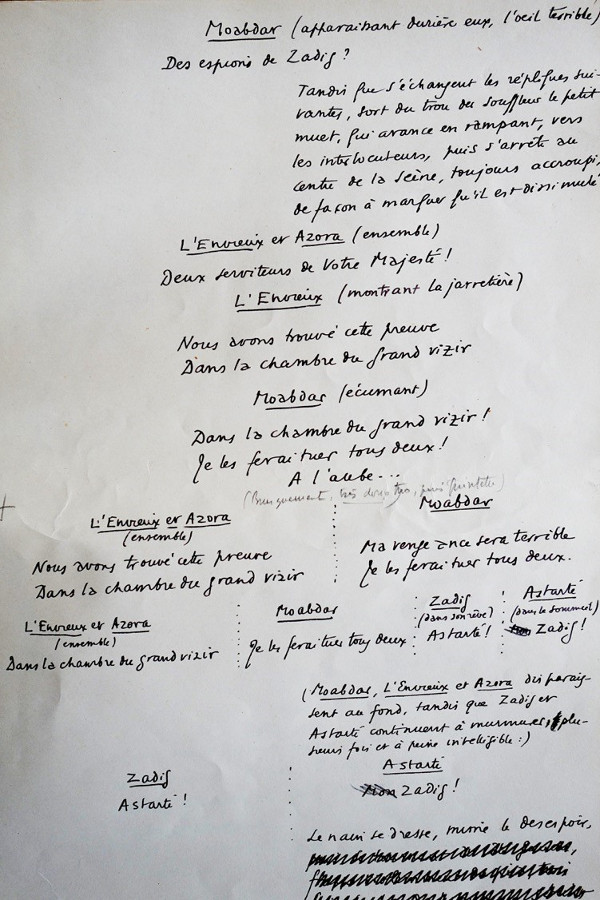 Moabdar (apparaissant derrière eux, l'oeil terrible)
Des espions de Zadig ?
Tandis que s'échangent les répliques sui-
vantes, sort du trou du souffleur le petit
muet, qui avance en rampant, vers
les interlocuteurs, puis s'arrête au
centre de la scène, toujours accroupi,
de façon à marquer qu'il est dissimulé
L'Envieux et Azora (ensemble)
Deux serviteurs de Votre Majesté !
L'Envieux (montrant la jarretière)
Nous avons trouvé cette preuve
Dans la chambre du grand vizir
Moabdar (écumant)
Dans la chambre du grand vizir !
Je les ferai tuer tous deux !
A l'aube...
(Brusquement, très doux, puis quintette)
L'Envieux et Azora
(ensemble)
Nous avons trouvé cette preuve
Dans la chambre du grand vizir
Moabdar
Ma vengeance sera terrible
Je les ferai tuer tous deux.
L'Envieux et Azora
(ensemble)
Dans la chambre du grand vizir
Moabdar
Je les ferai tuer tous deux
Zadig
(dans son rêve)
Astarté !
Astarté
(dans le sommeil)
Zadig !
(Moabdar, L'Envieux et Azora disparais-
sent au fond, tandis que Zadig et
Astarté continuent à murmurer, plu-
sieurs fois et à peine intelligible :)
Zadig
Astarté !
Astarté
Mon Zadig !
Le nain se dresse, mime le désespoir,